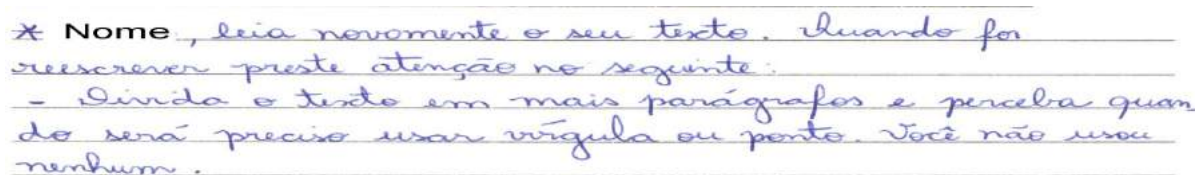 * Nome, leia novamente o seu texto. Quando for
reescrever preste atenção no seguinte:
- Divida o texto em mais parágrafos e perceba quan
do será preciso usar vírgula ou ponto. Você não usou
nenhum.